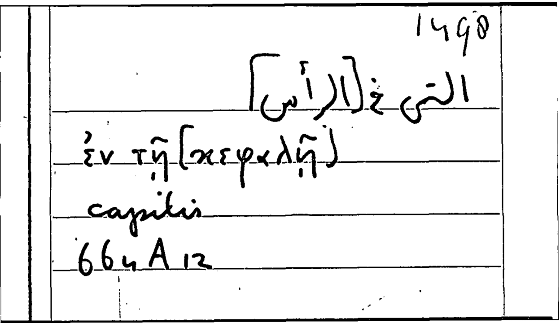 1498
التى فى [الرأس]
ἐν τῇ [κεφαλῇ]
capitis
664 A 12